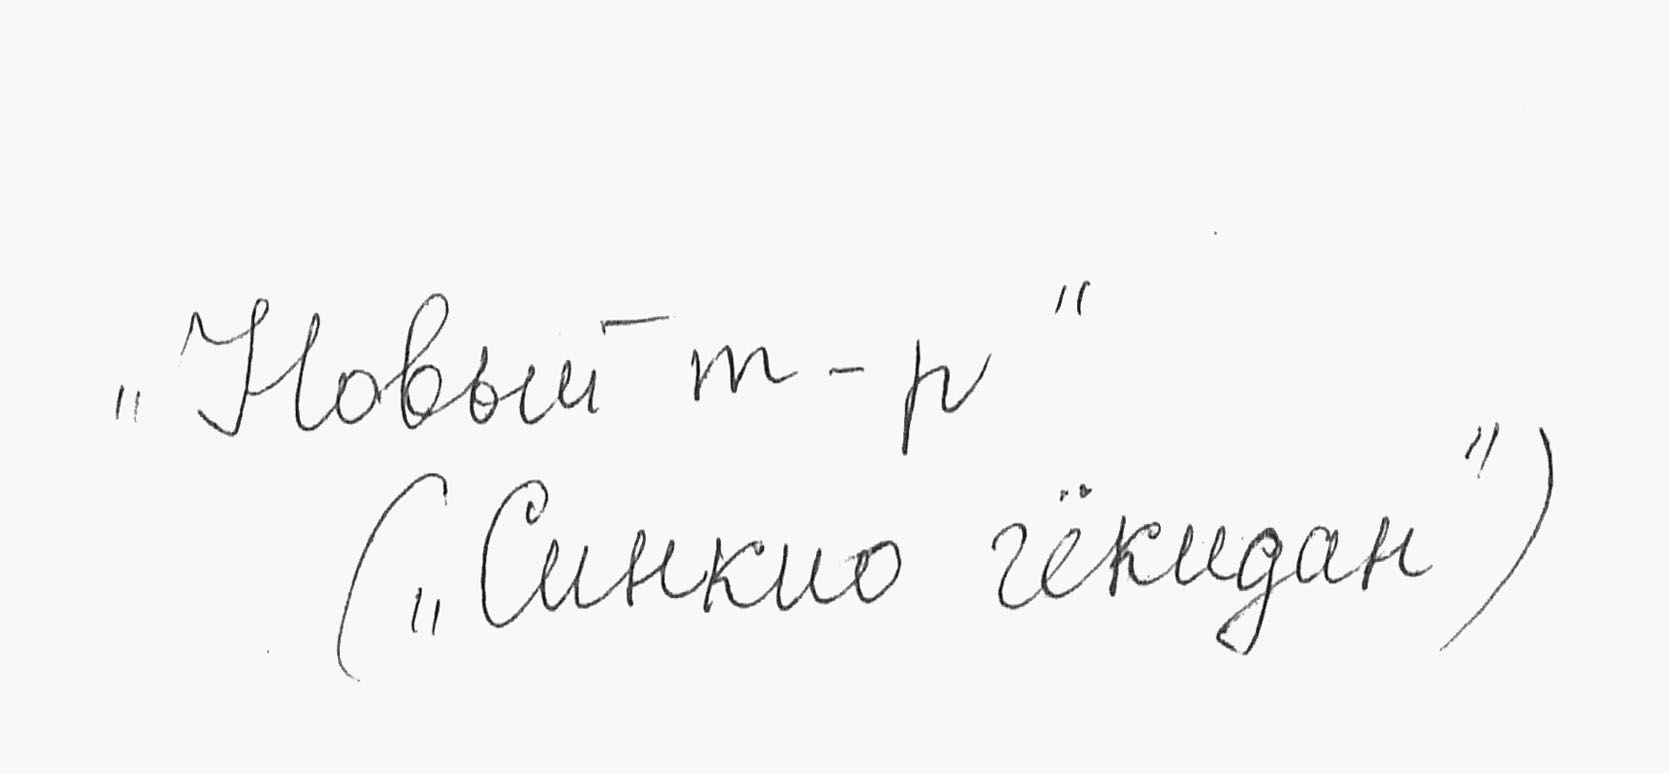 „Новый т-р"
(„Синкио гёкидан")